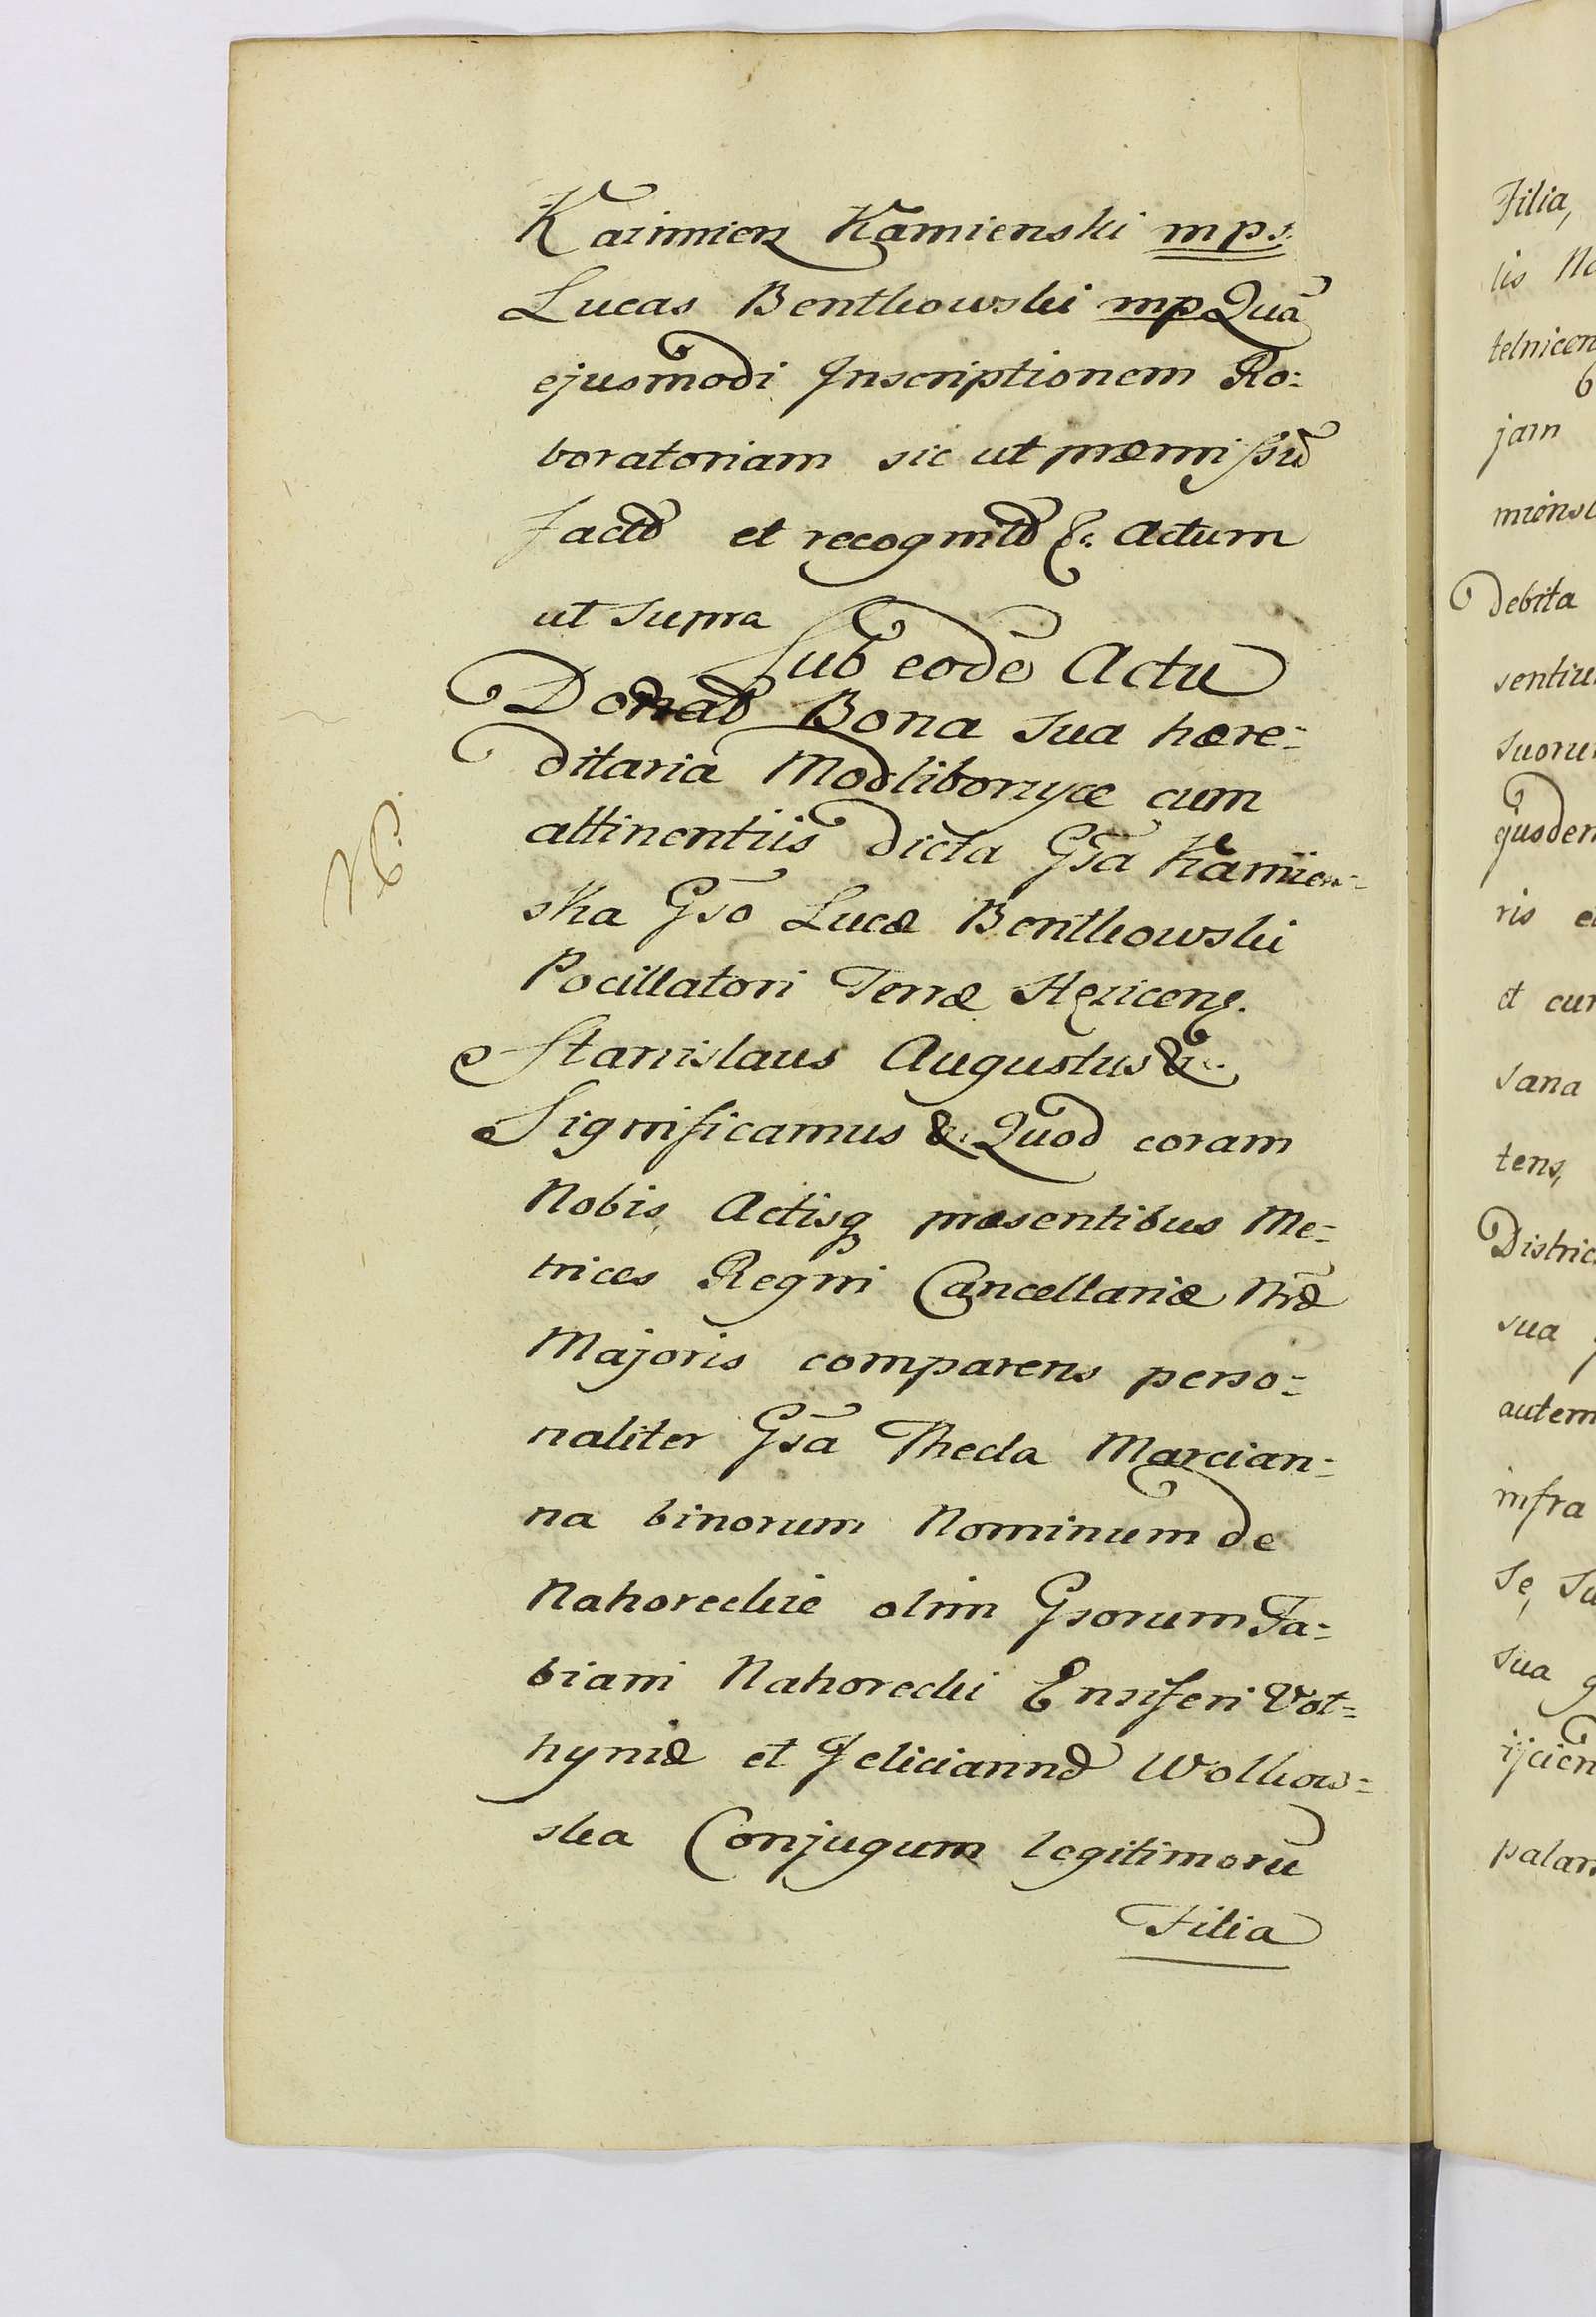 Kazimierz Kamienski mp.
Lucas Bentkowski mp Quã
ejusmodi Inscriptionem Ro=
boratoriam sic ut præmissũ
factã et recognitã &. Actum
ut supra
Sub eodẽ Actu
Donat Bona sua hære=
ditaria Modliborzyce cum
attinentiis dicta Gsã Kamien=
ska Gsõ Lucæ Bentkowski
Pocillatori Terræ
Stanislaus Augustus &.
Significamus &. Quod coram
Nobis, Actisq præsentibus Me=
trices Regni Cancellariæ Nrã
Majoris comparens perso=
naliter Gsã Thecla Marcian=
na binorum Nominum de
Nahoreckie olim Gsorum Fa=
biani Nahorecki Ensiferi Vol=
hyniæ et Feliciannæ Wolkow=
ska Conjugum legitimorũ
Filia
NB.
Filia,
telnicen
jam
Debita
sentiu
suoru
ejusdem
ris
et cum
sana
tens,
sua
autem
infra
se, sa
sua
ijcien
palam